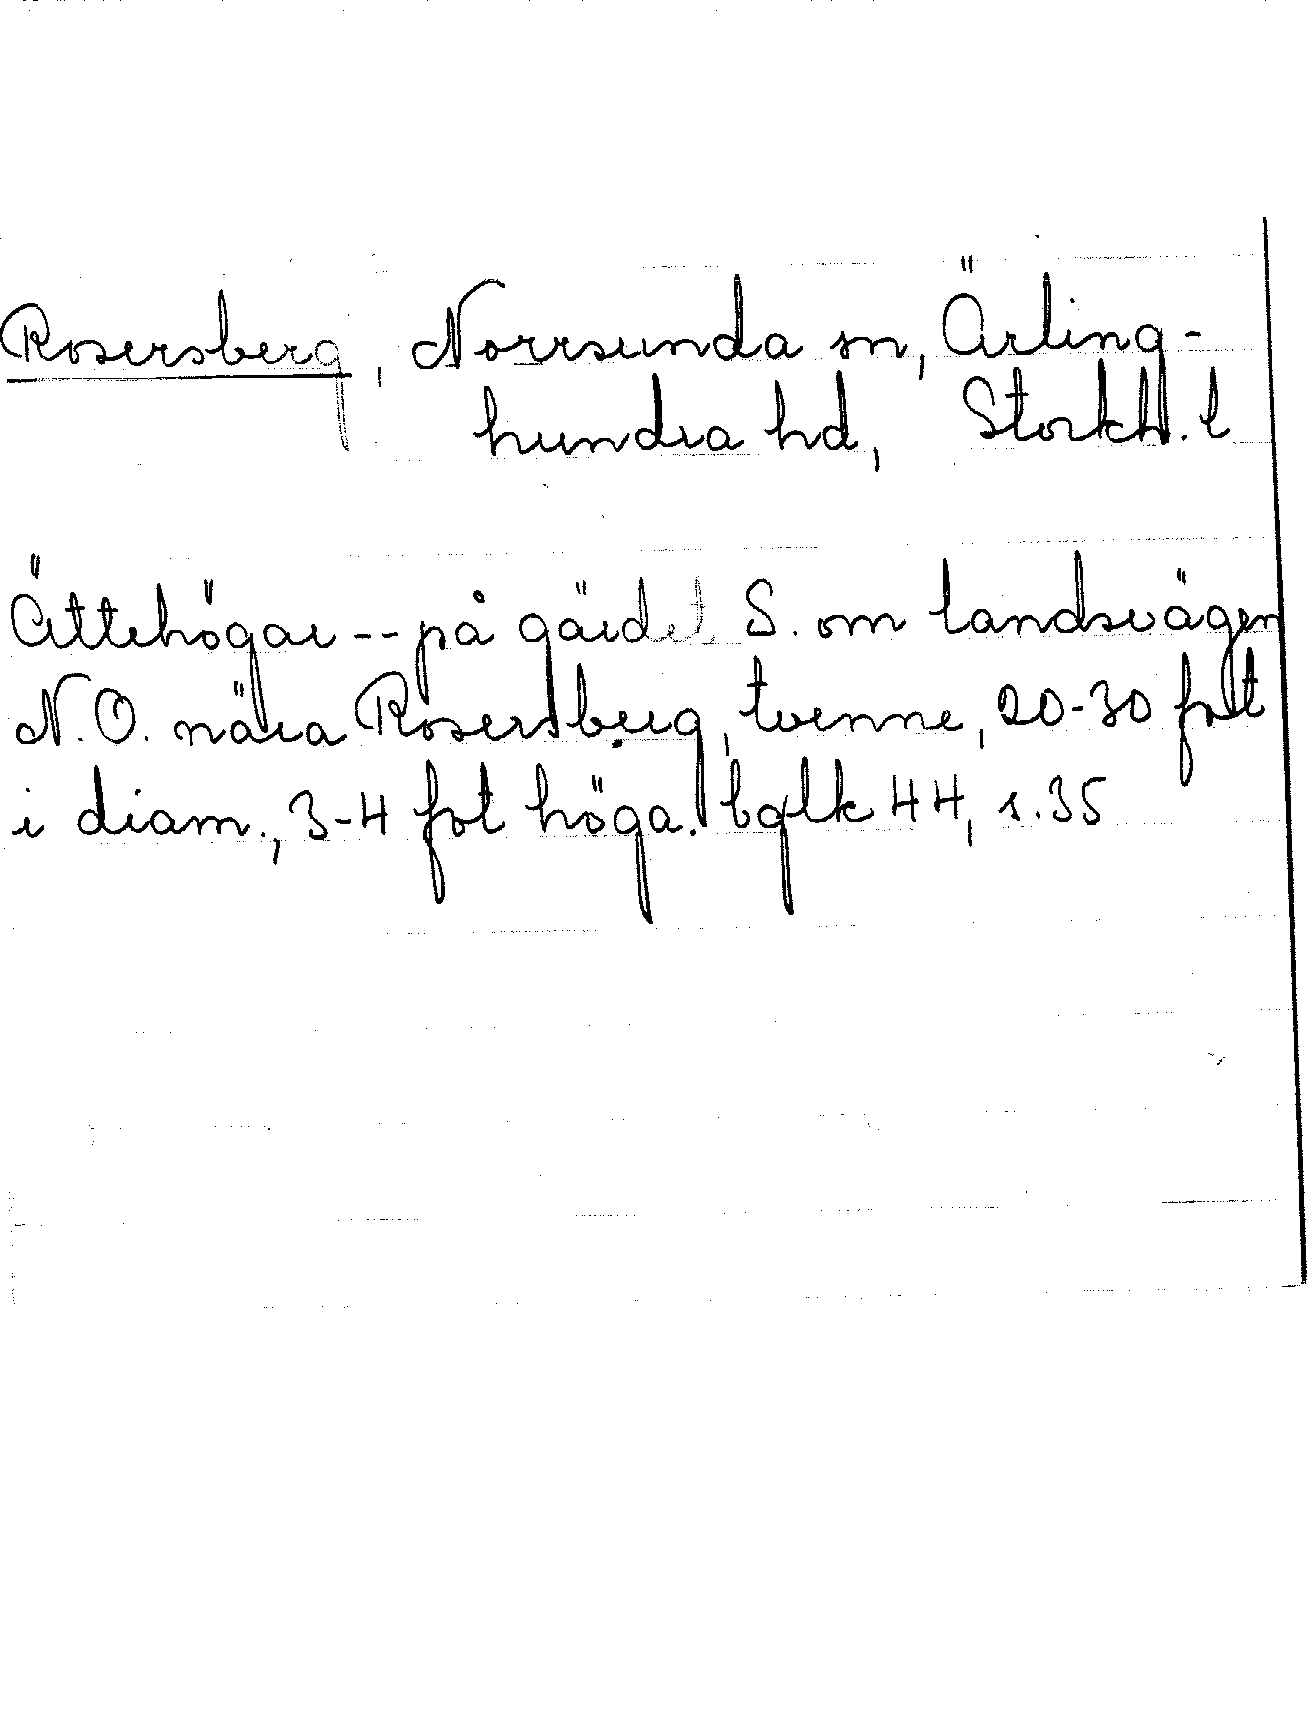 Rosersberg, Norrsunda sn, Ärling-
hundra hd, Stockh. l
Ättehögar -- på gärdet S. om landsvägen
N.O. nära Rosersberg, tvenne, 20-30 fot
i diam., 3-4 fot höga. bglk 44, s.35